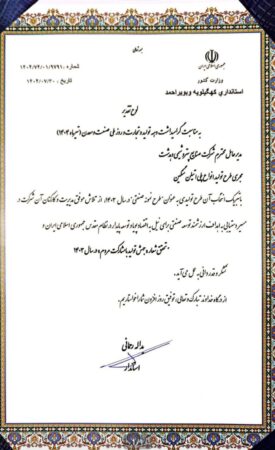 بسمه تعالی
جمهوری اسلامی ایران
وزارت کشور
استانداری کهگیلویه وبویراحمد
شماره : ۱۴۰۲/۷۴/۰۱/۱۹۷۹۱
تاریخ : ۱۴۰۲/۰۷/۳۰
لوح تقدیر
به مناسبت گرامیداشت دهه تولید و تجارت و روز ملی صنعت و معدن (تیرماه ۱۴۰۲)
مدیرعامل محترم شرکت صنایع پتروشیمی دهدشت
مجری طرح تولید انواع پلی اتیلن سنگین
با تبریک انتخاب آن طرح تولیدی به عنوان «طرح نمونه صنعتی» در سال ۱۴۰۲، از تلاش موفق مدیریت و کارکنان آن شرکت در
مسیر دستیابی به اهداف ارزشمند توسعه صنعتی برای نیل به اقتصاد پویا و توسعه پایدار در نظام مقدس جمهوری اسلامی ایران و
تحقق شعار « جهش تولید با مشارکت مردم » در سال ۱۴۰۳
تشکر و قدردانی به عمل می آید.
از درگاه خداوند تبارک و تعالی، توفیق روز افزون شما را خواستاریم.
یداله رحمانی
استاندار